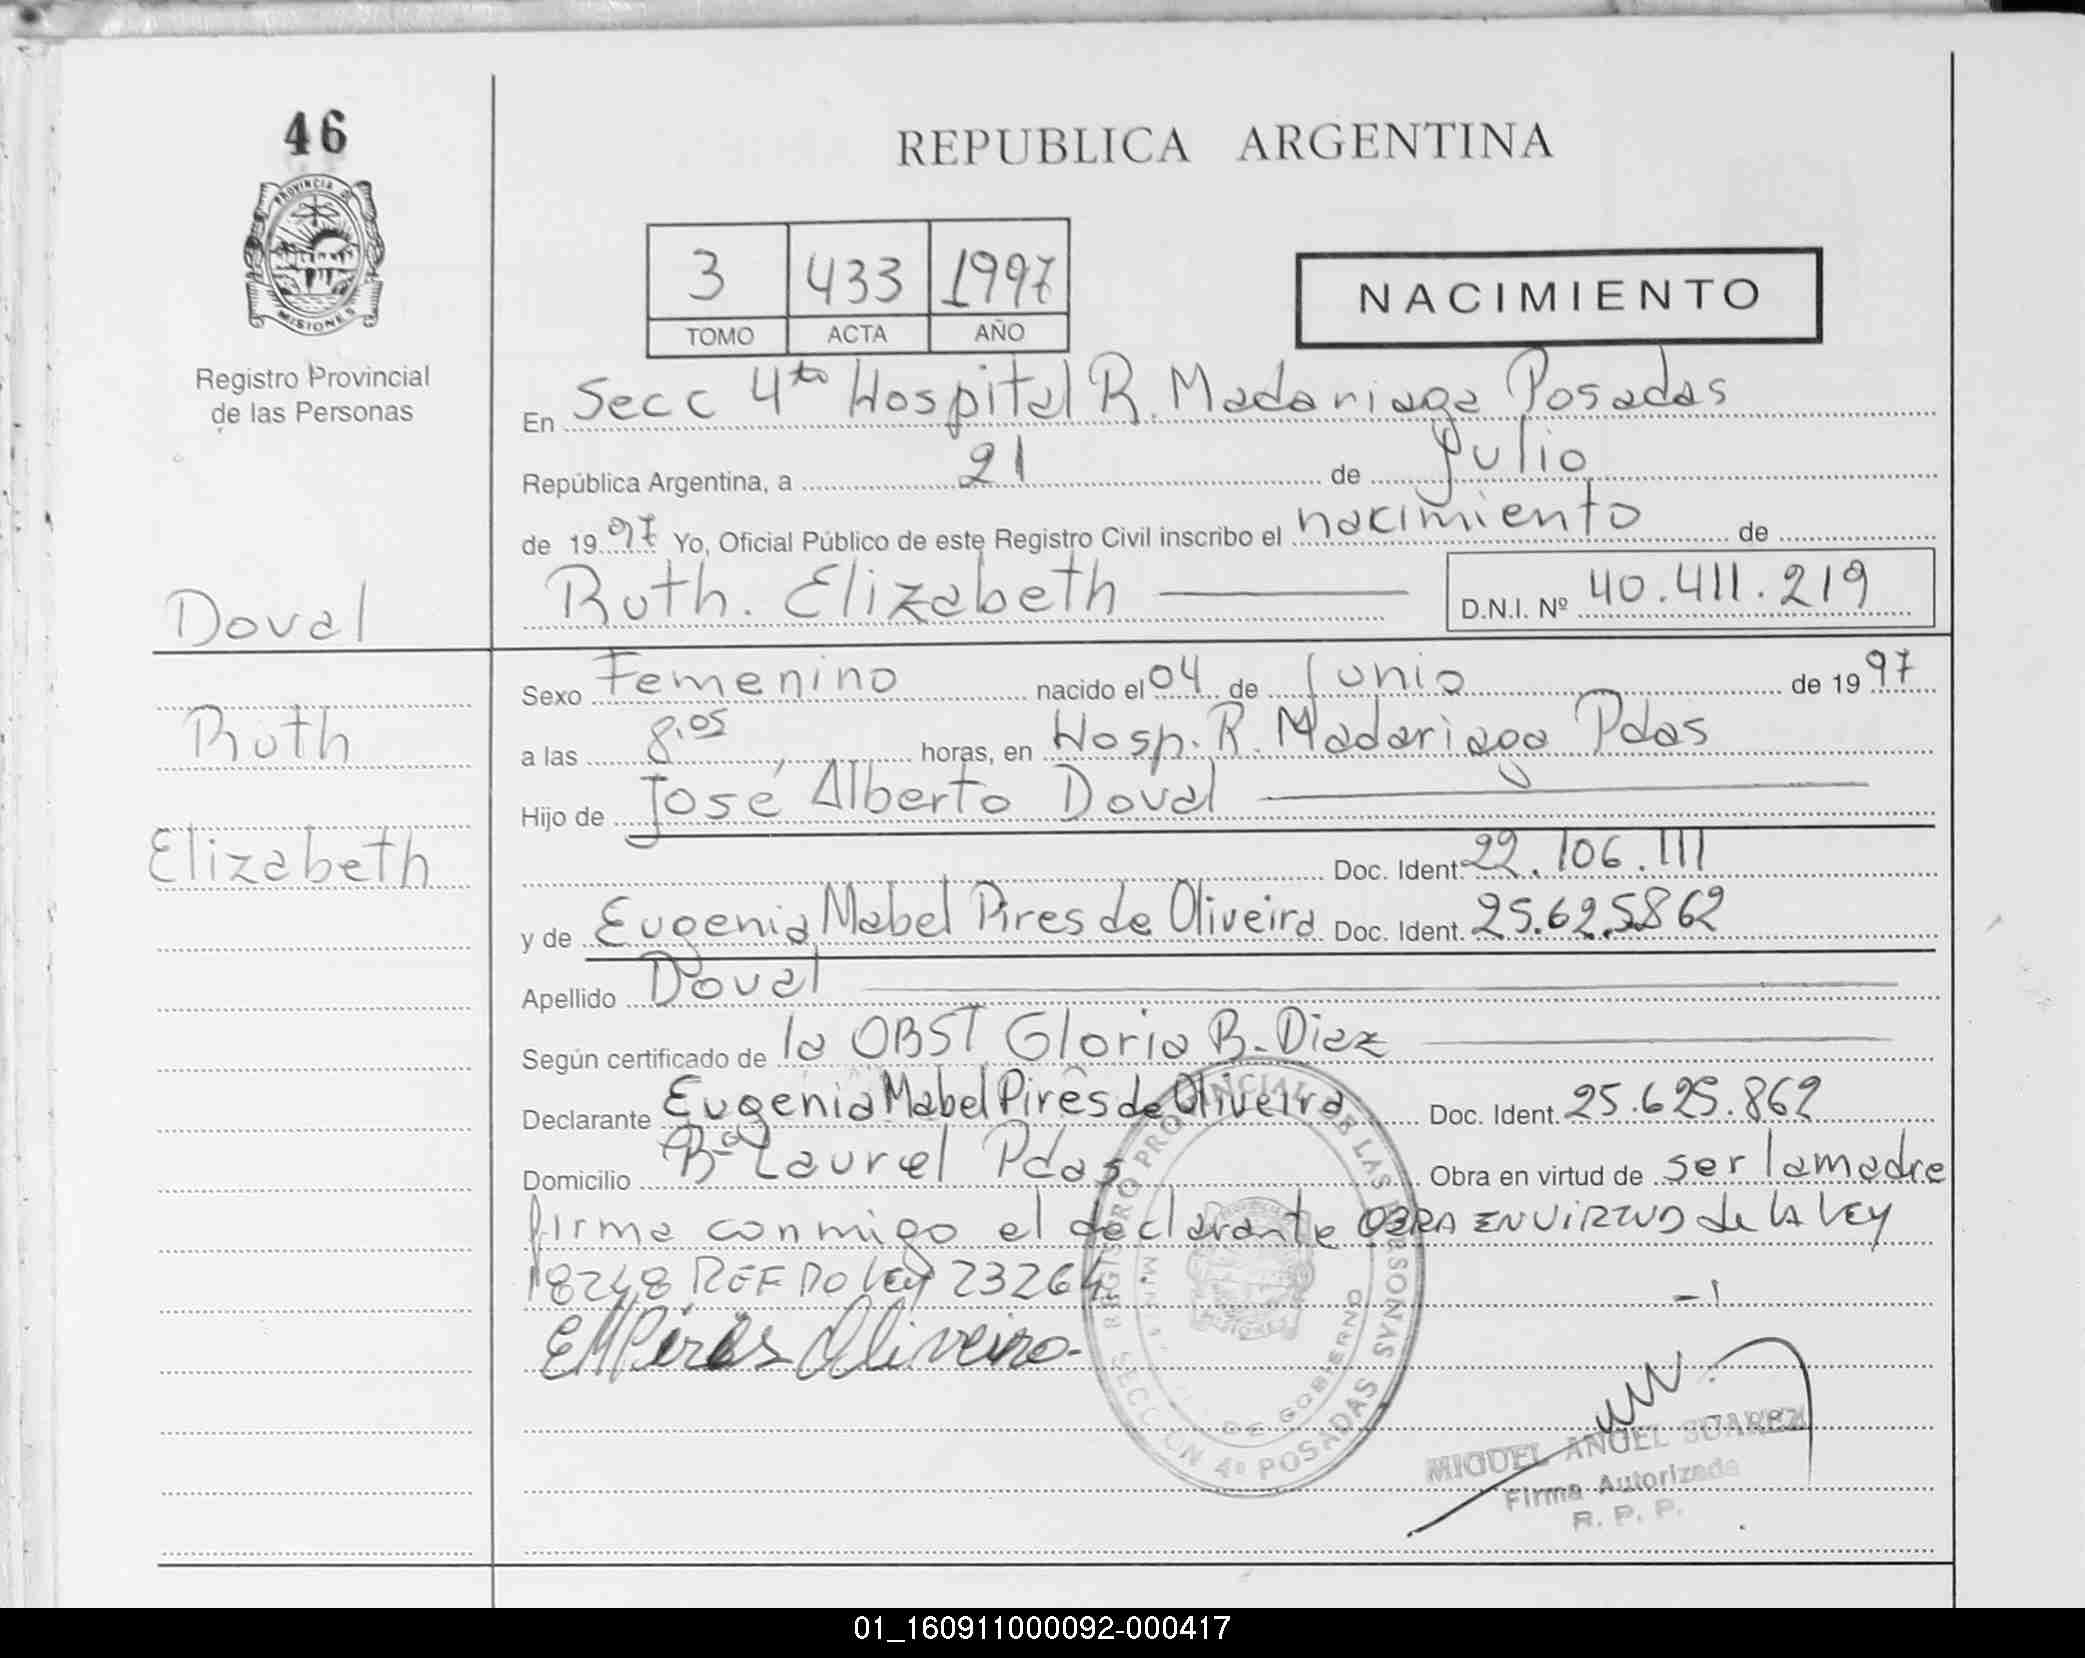 46
PROVINCIA DE
MISIONES
Registro Provincial
de las Personas
Doval
Ruth
Elizabeth
REPUBLICA ARGENTINA
3 433 1997
TOMO ACTA AÑO
NACIMIENTO
En Secc 4ta Hospital R. Madariaga Posadas
República Argentina, a 21 de Julio
de 1997 Yo, Oficial Público de este Registro Civil inscribo el nacimiento de
Ruth. Elizabeth D.N.I. Nº 40.411.219
Sexo Femenino nacido el 04 de Junio de 1997
a las 8,05 horas, en Hosp. R. Madariaga Pdas
Hijo de José Alberto Doval
Doc. Ident. 22.106.111
y de Eugenia Mabel Pires de Oliveira Doc. Ident. 25.625.862
Apellido Doval
Según certificado de la OBST Gloria B. Diaz
Declarante Eugenia Mabel Pires de Oliveira Doc. Ident. 25.625.862
Domicilio Bº Laurel Pdas Obra en virtud de ser la madre
firma conmigo el declarante OBRA EN VIRTUD de LA LEY
18248 REF DO Ley 23264
EMPires Oliveira
REGISTRO PROVINCIAL DE LAS PERSONAS
DE GOBIERNO
SECCION 4º POSADAS
MIGUEL ANGEL SUAREZ
Firma Autorizada
R. P. P.
01_160911000092-000417